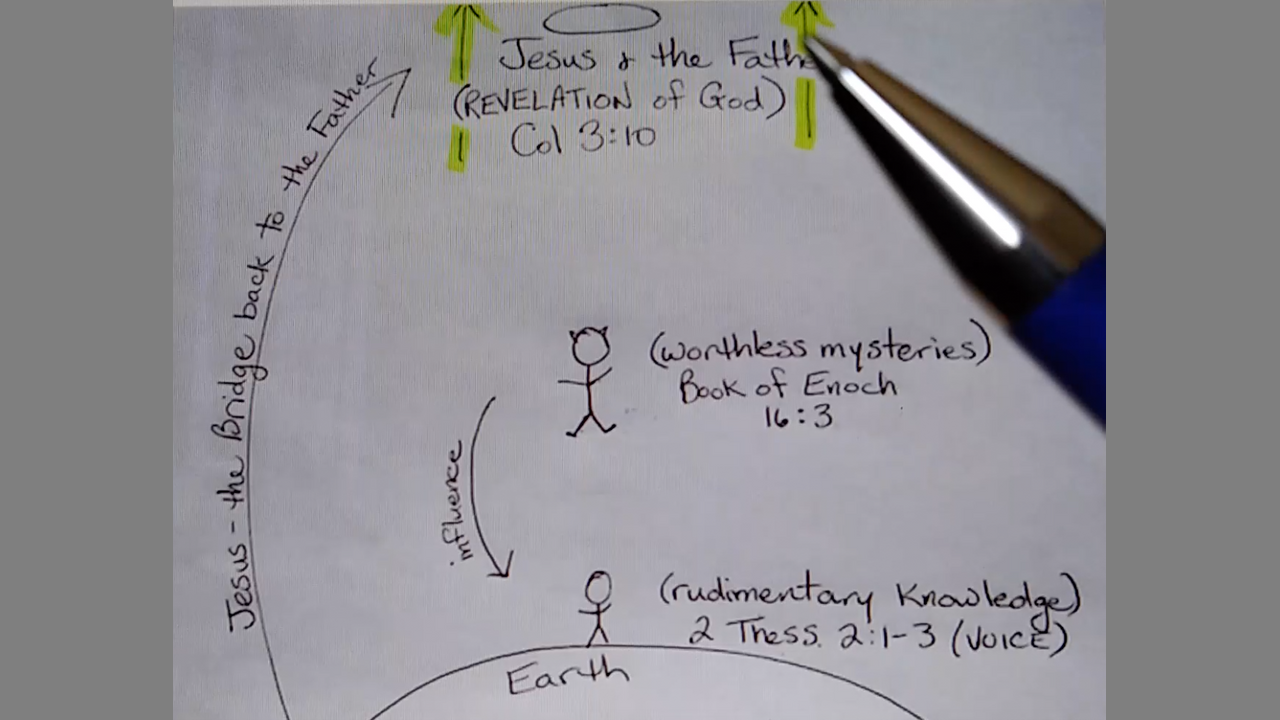 Jesus & the Fath
(REVELATION of God)
Col 3:10
Jesus - the Bridge back to the Father
(worthless mysteries)
Book of Enoch
16:3
influence
(rudimentary Knowledge)
2 Thess. 2:1-3 (VOICE)
Earth